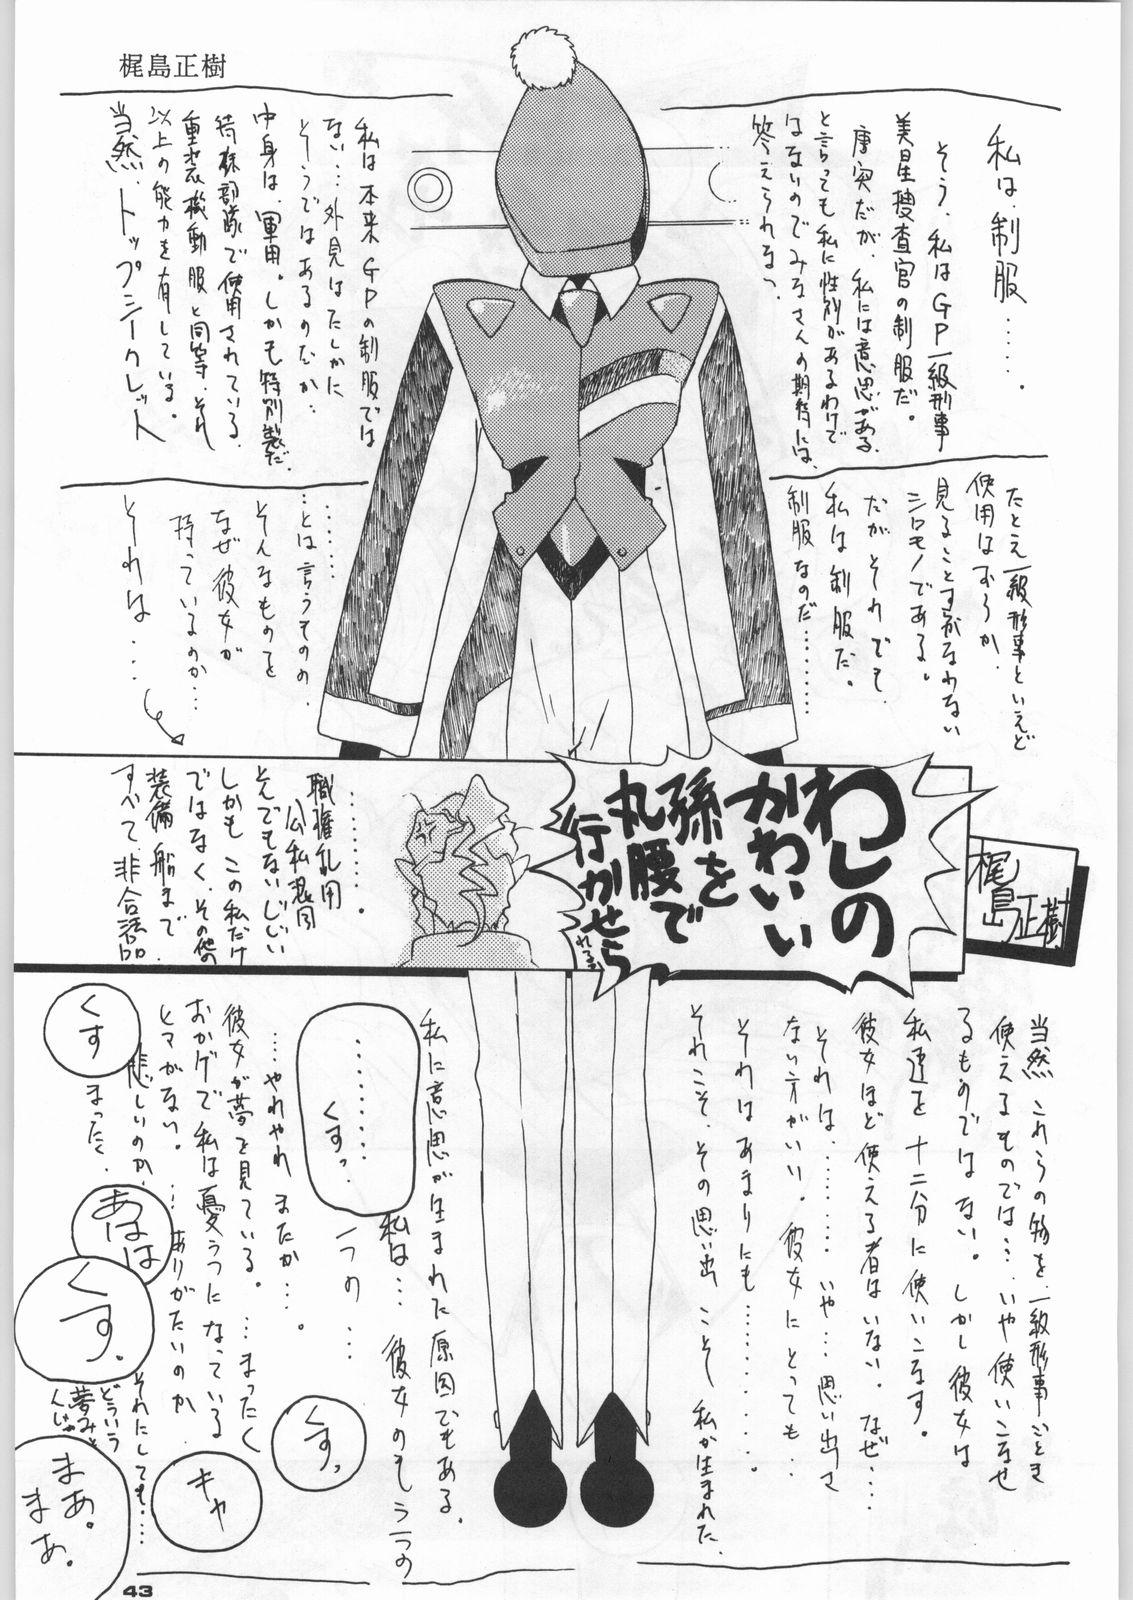 梶島正樹
私は、制服‥‥‥。
そう、私はGP一級刑事
美星捜査官の制服だ。
唐突だが、私には意思がある。
と言っても私に性別があるわけで
はないのでみなさんの期待には、
答えられなぃ。
私は本来GPの制服では
ない‥‥外見はたしかに
そうではあるのだが‥
中身は、軍用。しかも特別製だ。
特殊部隊で使用されている、
重装機動服と同等、それ
以上の能力を有している。
当然、トップシークレット
たとえ一級刑事といえど
使用はおろか、
見ることすらかなわない
シロモノである。
だがそれでも
私は制服だ。
制服なのだ‥‥‥‥
‥‥‥‥
‥‥とは言うものの、
そんなものを
なぜ彼女が
持っているのか‥‥
それは‥‥‥
わしの
かわいい
孫を
丸腰で
行かせら
れるか
梶島正樹
‥‥‥‥‥。
職権乱用
公私混同
とんでもないじじい
しかもこの私だけ
ではなく、その他の
装備、船まで
すべて、非合法品
当然これらの物を一級刑事ごとき
使えるものでは‥‥いや使いこなせ
るものではない。しかし彼女は
私達を十二分に使いこなす。
彼女ほど使える者はいない。なぜ‥‥
それは‥‥‥‥いや‥‥思い出さ
ない方がいい。彼女にとっても‥‥
それはあまりにも‥‥‥‥‥‥。
それこそ、その思い出こそ私が生まれた、
私に意思が生まれた原因でもある。
私は‥‥彼女のもう一つの
一つの‥‥‥
‥‥‥‥‥‥
くすっ
‥‥やれやれまたか‥‥。
彼女が夢を見ている。‥‥まったく
おかげで私は憂うつになっている
ヒマがない。‥‥ありがたいのか
悲しいのか、
まったく、
それにしても‥‥‥
どういう
夢みと
んじゃ
くす
あはは
くす。
くすっ
キャ
まあ。
まあ。
43